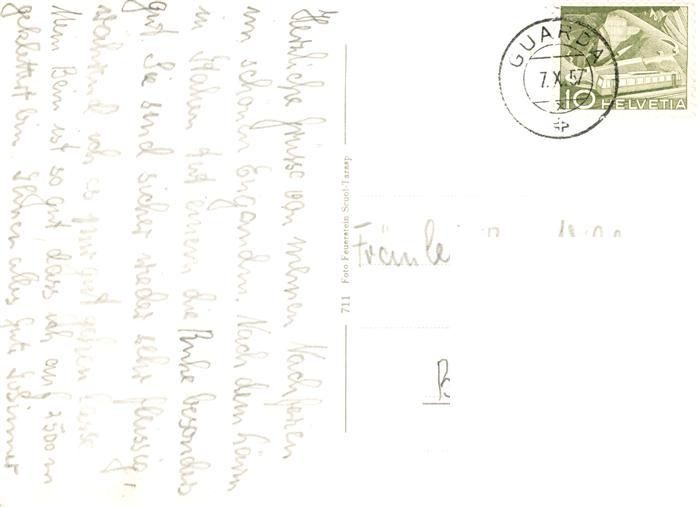 Herzliche Grüsse von meinen Nachferien
im schönen Engandin. Nach dem Lärm
in Italien tut einem die Ruhe besonders
gut. Sie sind sicher wieder sehr fleissig,
während ich es mir gut gehen lasse
Mein Bein ist so gut, dass ich auf 2500 m
geklettert bin. Ihnen alles gute
711 Foto Feuerstein Scuol-Tarasp
GUARDA
7.X.57
10 HELVETIA
Fräule